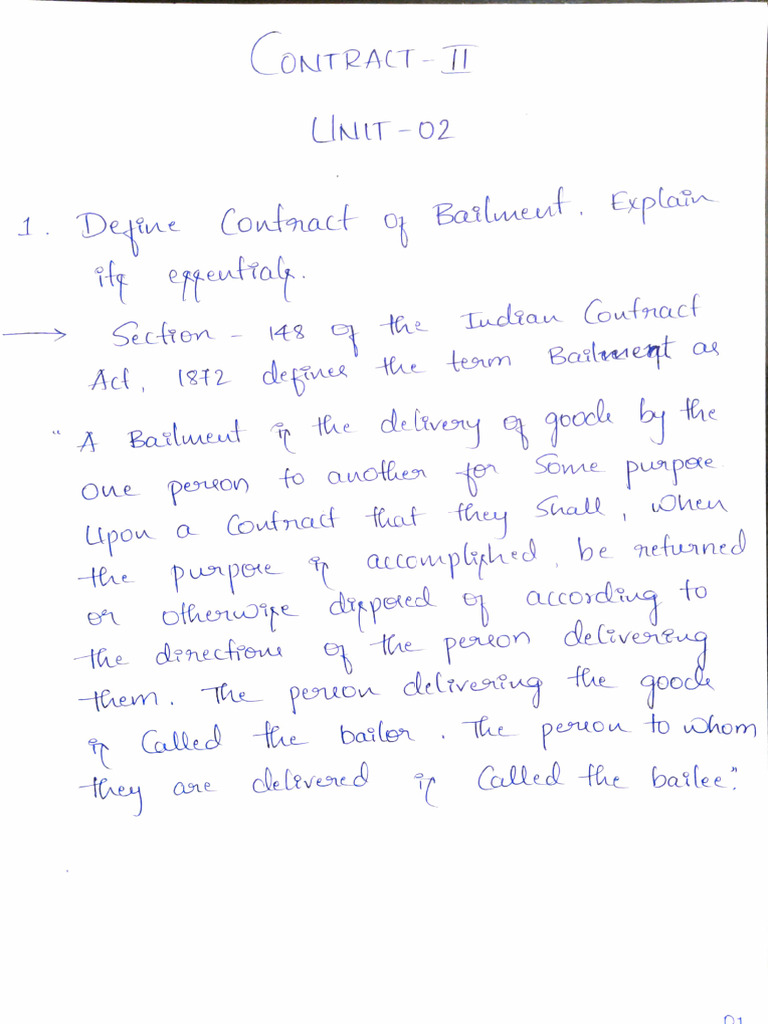 CONTRACT - II
UNIT - 02
1. Define Contract of Bailment. Explain
its essentials.
→ Section - 148 of the Indian Contract
Act, 1872 defines the term Bailment as
"A Bailment is the delivery of goods by the
one person to another for some purpose
upon a contract that they shall, when
the purpose is accomplished, be returned
or otherwise disposed of according to
the directions of the person delivering
them. The person delivering the goods
is called the bailor. The person to whom
they are delivered is called the bailee".
01